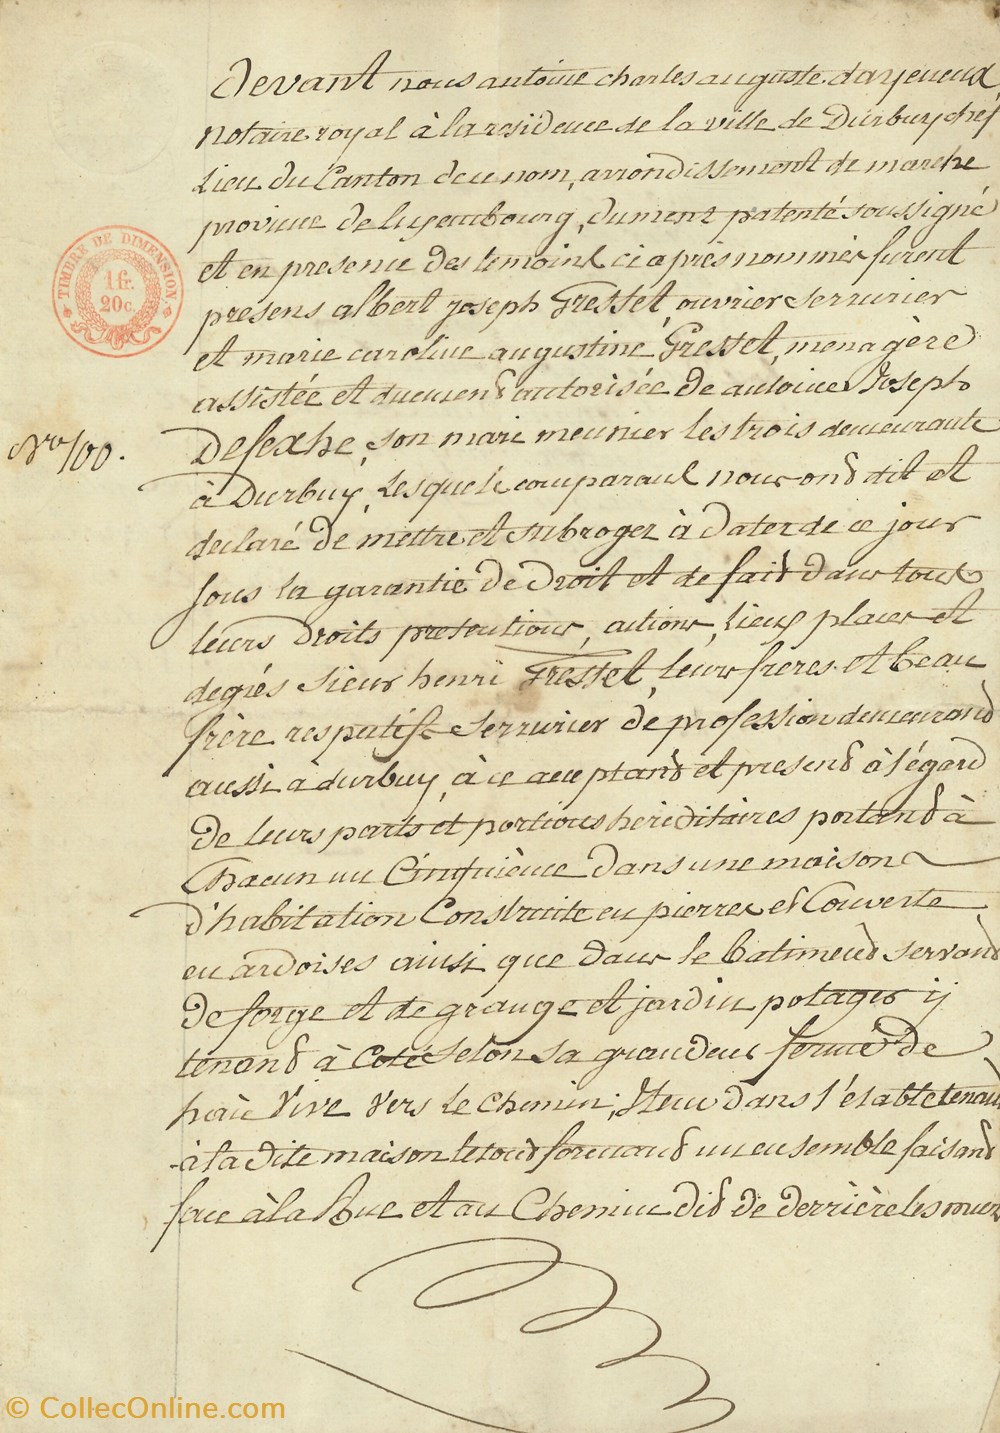 devant nous antoine charles auguste dayeneux
notaire royal à la residence de la ville de Durbuy chef
Lieu du Canton de ce nom, arrondissement de marche
province de luxembourg, dument patenté soussigné
et en presence des temoins ci après nommés furent
presens albert joseph Fresset, ouvrier serrurier
et marie caroline augustine Fresset, menagère
assistée et duement autorisée de antoine Joseph
Defexhe, son mari meunier les trois demeurants
à Durbuy, Lesquels comparans nous ond dit et
declaré de mettre et subroger à dater de ce jour
sous la garantie de droit et de faid dans tous
leurs droits pretentions, actions, Lieux places et
degrés sieur henri Fresset, leurs frères et beau
frère respectifs serrurier de profession demeurand
TIMBRE DE DIMENSION
1 fr.
20c.
No 100.
aussi a durbuy, à ce acceptand et presend à l'égard
de leurs parts et portions héréditaires portand à
Chacun un Cinquième dans une maison
d'habitation Construite en pierres et Couverte
en ardoises ainsi que dans le batimend servand
de forge et de grange et jardin potager ij
tenand à coté selon sa grandeur fermé de
haie Vive vers le chemin; Item dans l'étable tenand
à la dite maison le toud formand un ensemble faisand
face à la Rue et au Chemin did de derrière les murs
© CollecOnline.com